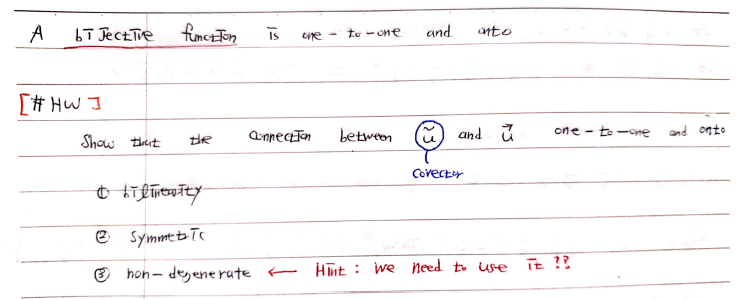 A bijective function is one-to-one and onto
[#HW]
Show that the connection between ũ and u⃗ one-to-one and onto
covector
① bilinearity
② symmetric
③ non-degenerate ← Hint : we need to use it ??